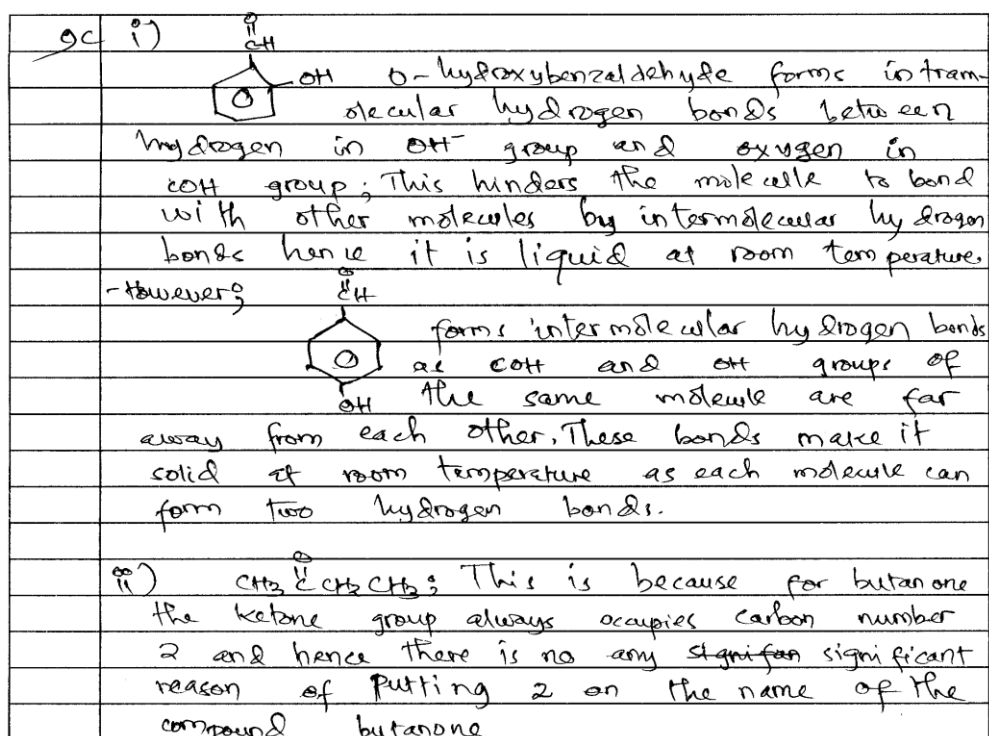 9c i) O
CH
OH O-hydroxybenzaldehyde forms intram-
olecular hydrogen bonds between
hydrogen in OH⁻ group and oxygen in
COH group; This hinders the molecule to bond
with other molecules by intermolecular hydrogen
bonds hence it is liquid at room temperature.
- However; O
CH
forms intermolecular hydrogen bonds
as COH and OH groups of
OH the same molecule are far
away from each other. These bonds make it
solid at room temperature as each molecule can
form two hydrogen bonds.
O
ii) CH3 C CH2 CH3; This is because for butanone
the ketone group always occupies carbon number
2 and hence there is no any signifan significant
reason of putting 2 on the name of the
compound butanone